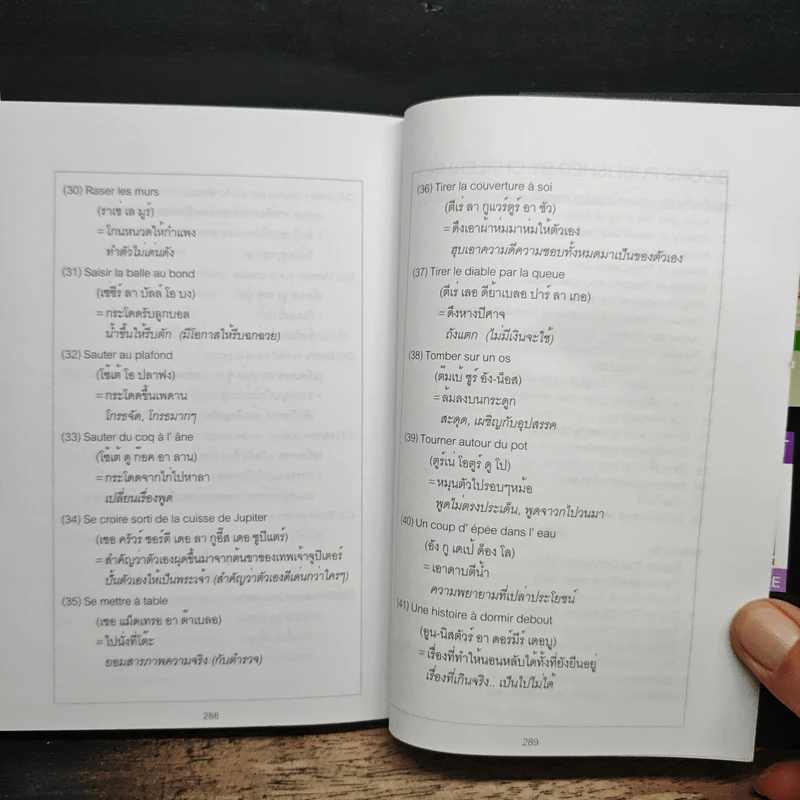 (30) Raser les murs
(ราเซ่ เล มูร์)
= โกนหนวดให้กำแพง
ทำตัวไม่เด่นดัง
(31) Saisir la balle au bond
(เซซีร์ ลา บัลล์ โอ บง)
= กระโดดรับลูกบอล
น้ำขึ้นให้รีบตัก (มีโอกาสให้รีบฉกฉวย)
(32) Sauter au plafond
(โซ้เต้ โอ ปลาฟง)
= กระโดดขึ้นเพดาน
โกรธจัด, โกรธมากๆ
(33) Sauter du coq à l' âne
(โซ้เต้ ดู ก๊อค อา ลาน)
= กระโดดจากไก่ไปหาลา
เปลี่ยนเรื่องพูด
(34) Se croire sorti de la cuisse de Jupiter
(เซอ ครัวร์ ซอร์ตี เดอ ลา กูอีส เดอ ชูปิแตร์)
= สำคัญว่าตัวเองผุดขึ้นมาจากต้นขาของเทพเจ้าจูปิเตอร์
ปั้นตัวเองให้เป็นพระเจ้า (สำคัญว่าตัวเองดีเด่นกว่าใครๆ)
(35) Se mettre à table
(เซอ แม็ตเทรอ อา ต๊าเบลอ)
= ไปนั่งที่โต๊ะ
ยอมสารภาพความจริง (กับตำรวจ)
288
(36) Tirer la couverture à soi
(ตีเร่ ลา กูแวร์ตูร์ อา ซัว)
= ดึงเอาผ้าห่มมาห่มให้ตัวเอง
ฮุบเอาความดีความชอบทั้งหมดมาเป็นของตัวเอง
(37) Tirer le diable par la queue
(ตีเร่ เลอ ดีย้าเบลอ ปาร์ ลา เกอ)
= ดึงหางปีศาจ
ถังแตก (ไม่มีเงินจะใช้)
(38) Tomber sur un os
(ต๊มเบ้ ซูร์ อัง-น็อส)
= ล้มลงบนกระดูก
สะดุด, เผชิญกับอุปสรรค
(39) Tourner autour du pot
(ตูร์เน่ โอตูร์ ดู โป)
= หมุนตัวไปรอบๆหม้อ
พูดไม่ตรงประเด็น, พูดจาวกไปวนมา
(40) Un coup d' épée dans l' eau
(อัง กู เดเป้ ด็อง โล)
= เอาดาบตีน้ำ
ความพยายามที่เปล่าประโยชน์
(41) Une histoire à dormir debout
(อูน-นิสตัวร์ อา ดอร์มีร์ เดอบู)
= เรื่องที่ทำให้นอนหลับได้ทั้งที่ยังยืนอยู่
เรื่องที่เกินจริง.. เป็นไปไม่ได้
289